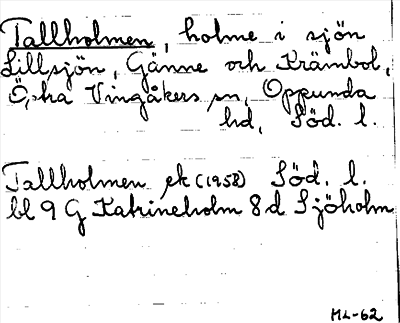 Tallholmen, holme i sjön
Lillsjön, Gänne och Krämbol,
Ö, stra Vingåkers sn, Oppunda
hd, Söd. l.
Tallholmen ek (1958) Söd. l.
bl 9 G Katrineholm 8 d Sjöholm
ML-62